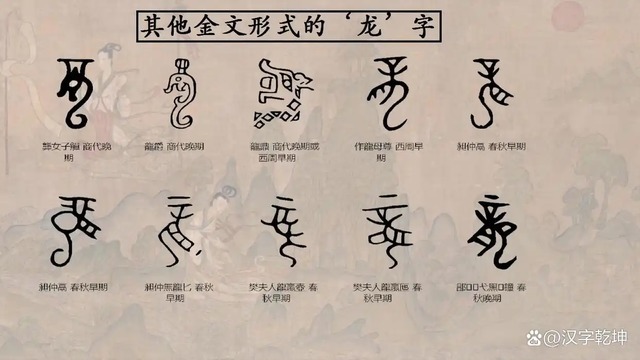 其他金文形式的‘龙’字
龏女子觚 商代晚
期
龍爵 商代晚期
龍鼎 商代晚期或
西周早期
作龍母尊 西周早
期
昶仲鬲 春秋早期
昶仲鬲 春秋早期
昶仲無龍匕 春秋
早期
樊夫人龍嬴壺 春
秋早期
樊夫人龍嬴鬲 春
秋早期
春
秋晚期
@汉字乾坤